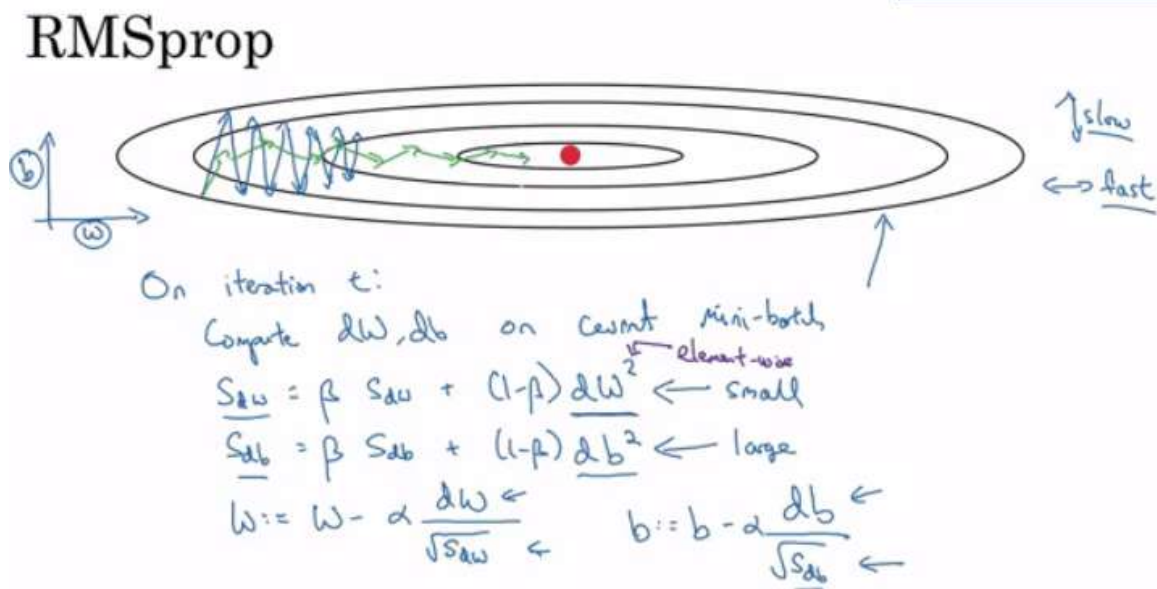 RMSprop
b
w
slow
fast
On iteration t:
Compute dW, db on current mini-batch
element-wise
Sdw = β Sdw + (1-β) dW² ← small
Sdb = β Sdb + (1-β) db² ← large
W := W - α dW ← / √Sdw ← b := b - α db ← / √Sdb ←